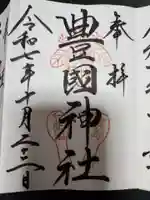 奉拝
豊國神社
令和七年十月二十二日